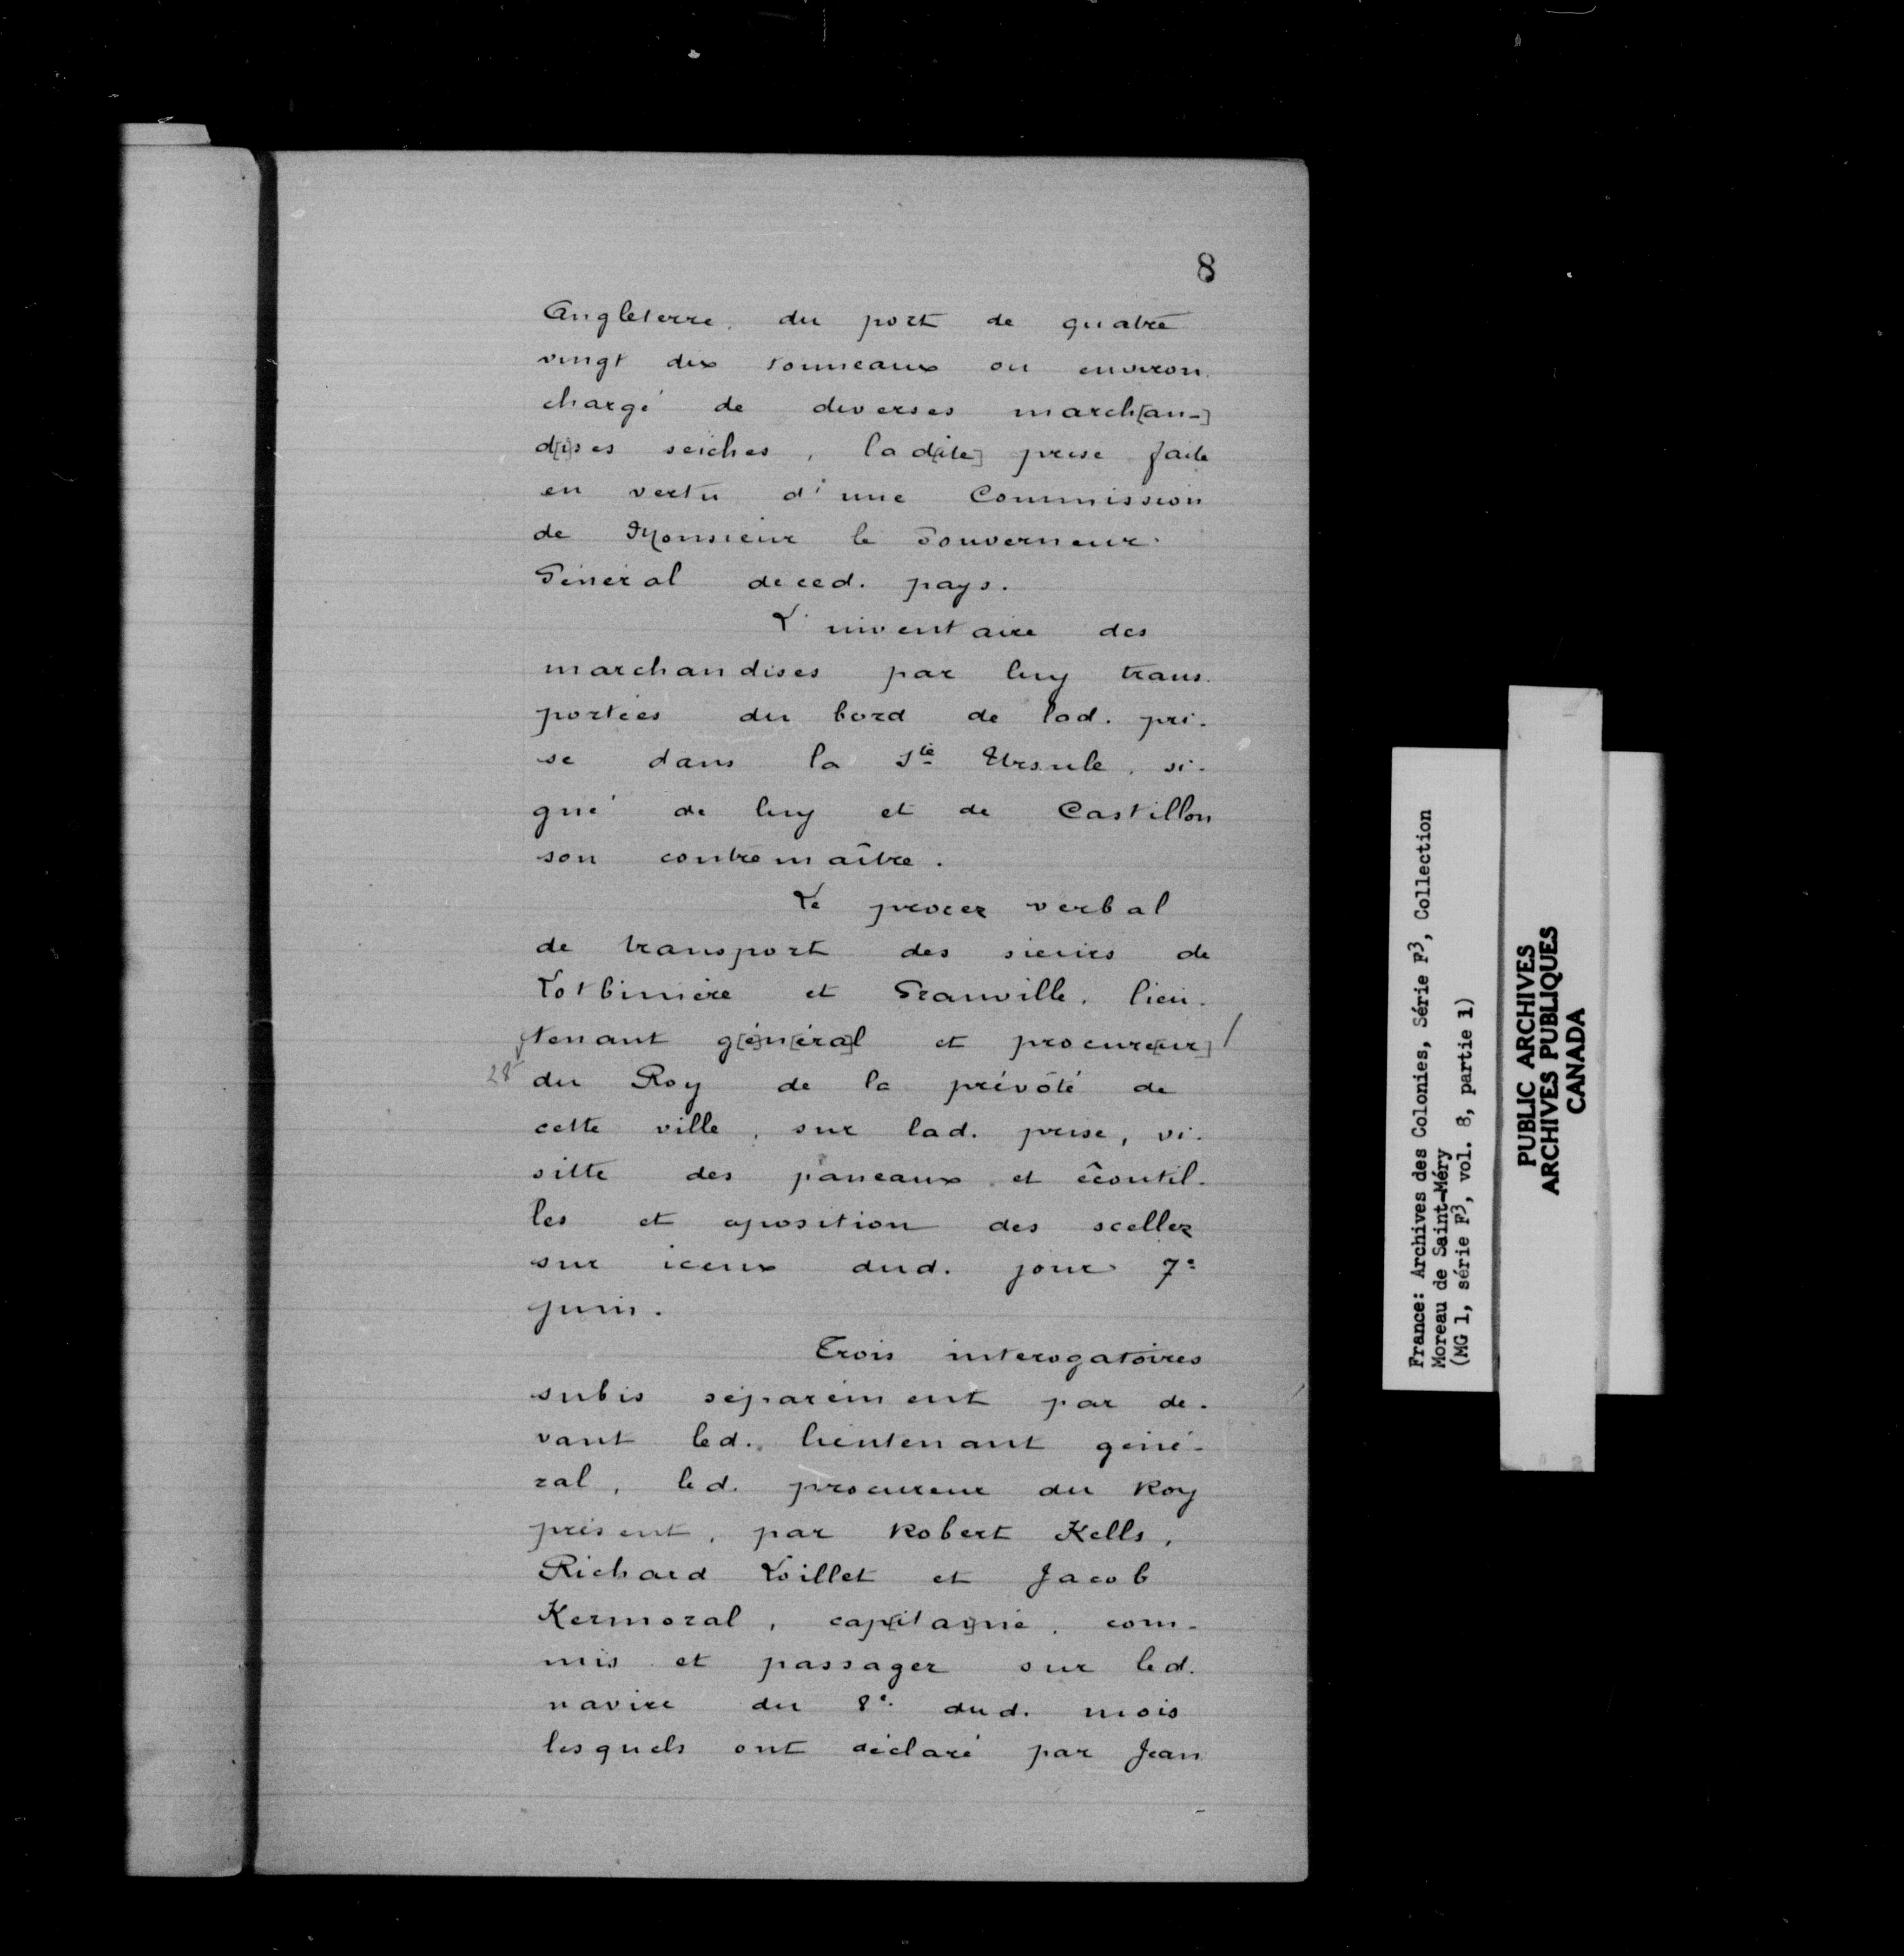 8
Angleterre, du port de quatre
vingt dix tonneaux ou environ
chargé de diverses march[an-]
d[i]ses seiches, lad[ite] prise faite
en vertu d'une Commission
de Monsieur le Gouverneur
Général deced. pays.
L'inventaire des
marchandises par luy trans-
portées du bord de lad. pri-
se dans la Ste Ursule, si-
gné de luy et de Castillon
son contremaître.
Le procez verbal
de transport des sieurs de
Lotbinière et Granville, lieu-
tenant g[é]n[éra]l et procure[ur] /
28 du Roy de la prévôté de
cette ville, sur lad. prise, vi-
sitte des paneaux et écoutil-
les et aposition des scellez
sur iceux dud. jour 7e
juin.
Trois interogatoires
subis séparément par de-
vant led. lieutenant géné-
ral, led. procureur du Roy
présent, par Robert Kells,
Richard Loillet et Jacob
Kermoral, cap[it]a[i]ne, com-
mis et passager sur led.
navire du 8e dud. mois
lesquels ont déclaré par Jean
France: Archives des Colonies, Série F3, Collection
Moreau de Saint-Méry
(MG 1, série F3, vol. 8, partie 1)
PUBLIC ARCHIVES
ARCHIVES PUBLIQUES
CANADA